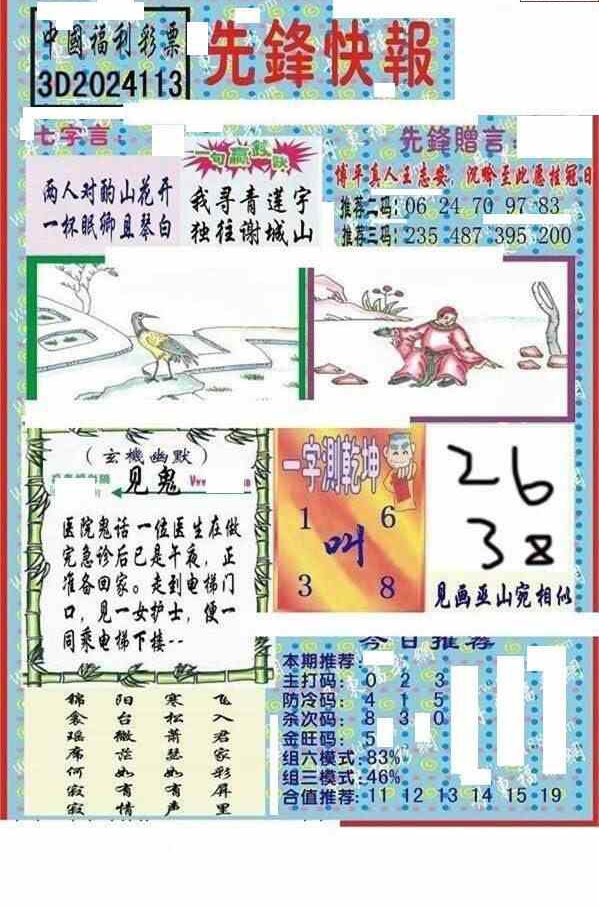 中國福利彩票
3D2024113
先鋒快報
七字言：
两人对酌山花开
一杯眠卿且琴白
一句赢
我寻青莲宇
独往谢城山
先鋒贈言：
博平真人王志安，沉吟至此愿挂冠
推荐二码：06 24 70 97 83
推荐三码：235 487 395 200
（玄機幽默）
见鬼
医院鬼话一位医生在做
完急诊后已是午夜，正
准备回家。走到电梯门
口，见一女护士，便一
同乘电梯下楼--
一字測乾坤
1 6
叫
3 8
26
38
见画巫山宛相似
锦衾瑶席何寂寂
阳台微茫如有情
寒松萧瑟如有声
飞入君家彩屏里
今日推荐
本期推荐：
主打码：0 2 3
防冷码：4 1 5
杀次码：8 3 0
金旺码：5
组六模式：83%
组三模式：46%
合值推荐：11 12 13 14 15 19